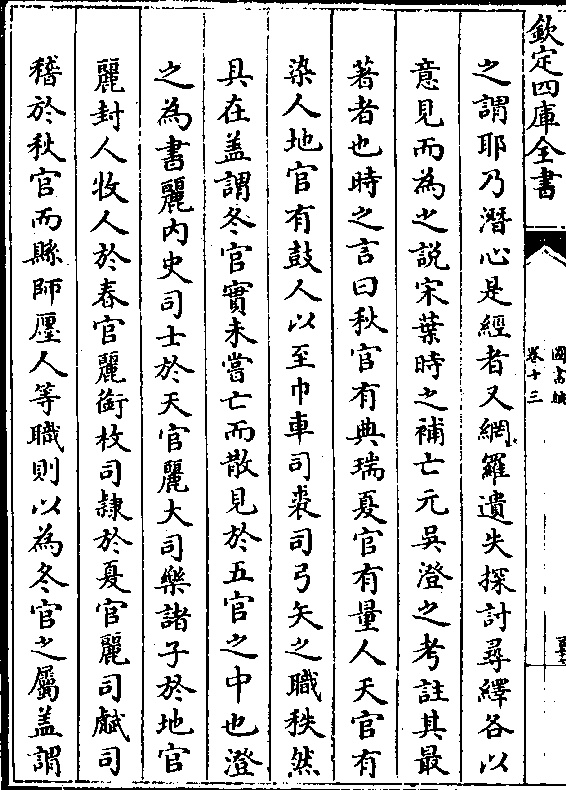 欽定四庫全書
圖書編
卷十三
之謂耶乃潛心是經者又網羅遺失探討尋繹各以
意見而為之説宋葉時之補亡元吳澄之考註其最
著者也時之言曰秋官有典瑞夏官有量人天官有
染人地官有鼓人以至巾車司裘司弓矢之職秩然
具在盖謂冬官實未嘗亡而散見於五官之中也澄
之為書麗内史司士於天官麗大司樂諸子於地官
麗封人牧人於春官麗銜枚司隸於夏官麗司虣司
稽於秋官而縣師廛人等職則以為冬官之屬盖謂